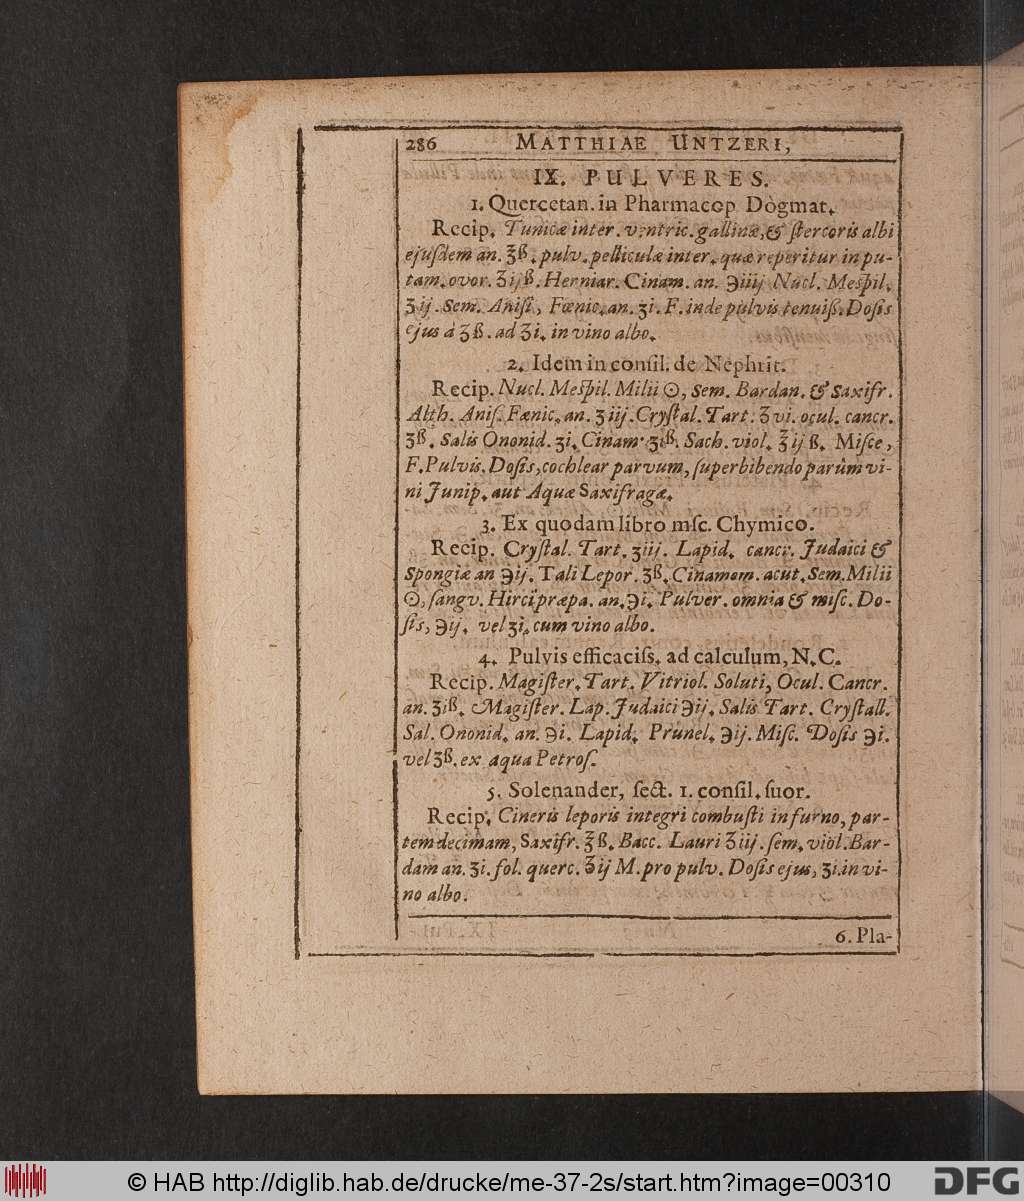 286 MATTHIAE UNTZERI,
IX. PULVERES.
1. Quercetan. in Pharmacop Dogmat.
Recip. Tunicæ inter. ventric. gallinæ, & ſtercoris albi
ejuſdem an. ℥ß. pulv. pelliculæ inter. quæ reperitur in pu-
tam. ovor. ʒijß. Herniar. Cinam. an. ℈iiij Nucl. Meſpil.
ʒij. Sem. Aniſi, Fœnic. an. ʒi. F. inde pulvis tenuiß. Doſis
ejus à ʒß. ad ʒi. in vino albo.
2. Idem in conſil. de Nephrit.
Recip. Nucl. Meſpil. Milii ☉, Sem. Bardan. & Saxifr.
Alth. Aniſ. Fænic. an. ʒiij. Cryſtal. Tart. ʒvi. ocul. cancr.
℥ß. Salis Ononid. ʒi. Cinam. ʒiß. Sach. viol. ℥ijß. Miſce,
F. Pulvis. Doſis, cochlear parvum, ſuperbibendo parùm vi-
ni Junip. aut Aquæ Saxifragæ.
3. Ex quodam libro mſc. Chymico.
Recip. Cryſtal. Tart. ʒiij. Lapid. cancr. Judaici &
Spongiæ an ℈ij. Tali Lepor. ʒß. Cinamom. acut. Sem. Milii
☉, ſangv. Hirci præpa. an. ℈i. Pulver. omnia & miſc. Do-
ſis, ℈ij. vel ʒi. cum vino albo.
4. Pulvis efficaciſs. ad calculum, N. C.
Recip. Magiſter. Tart. Vitriol. Soluti, Ocul. Cancr.
an. ʒiß. Magiſter. Lap. Judaici ℈ij. Salis Tart. Cryſtall.
Sal. Ononid. an. ℈i. Lapid. Prunel. ℈ij. Miſc. Doſis ℈i.
vel ʒß. ex aqua Petroſ.
5. Solenander, ſect. 1. conſil. ſuor.
Recip. Cineris leporis integri combuſti in furno, par-
tem decimam, Saxifr. ℥ß. Bacc. Lauri ʒiij. ſem. viol. Bar-
dam an. ʒi. fol. querc. ʒij M. pro pulv. Doſis ejus, ʒi. in vi-
no albo.
6. Pla-
© HAB http://diglib.hab.de/drucke/me-37-2s/start.htm?image=00310
DFG